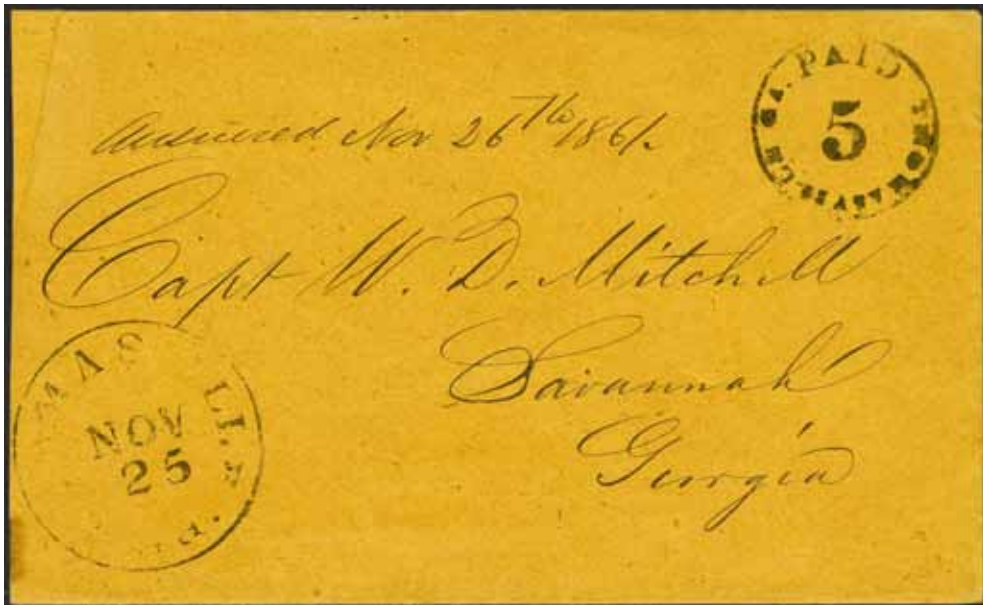 PAID
5
THOMASVILLE GA.
Answered Nov 26th 1861.
Capt W. D. Mitchell
Savannah
Georgia
MAS LLE
NOV
25